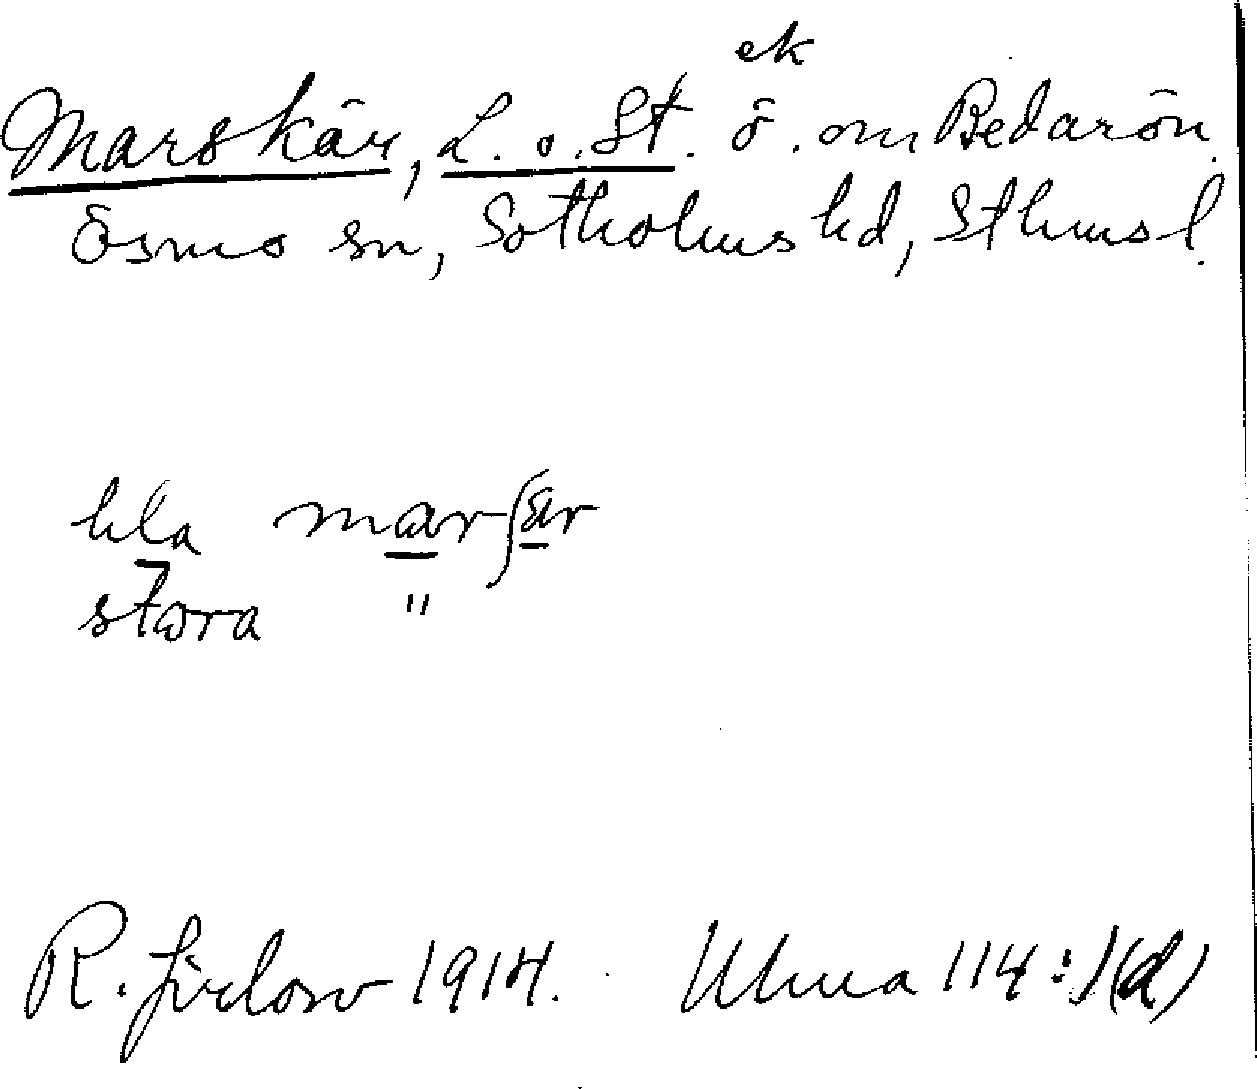 ek
Marskär, L. o. St. ö. om Bedarön.
Ösmo sn, Sotholms hd, Sthms l.
lila marʃär
stora "
R. Jirlow 1914. Ulma 114:1(d)